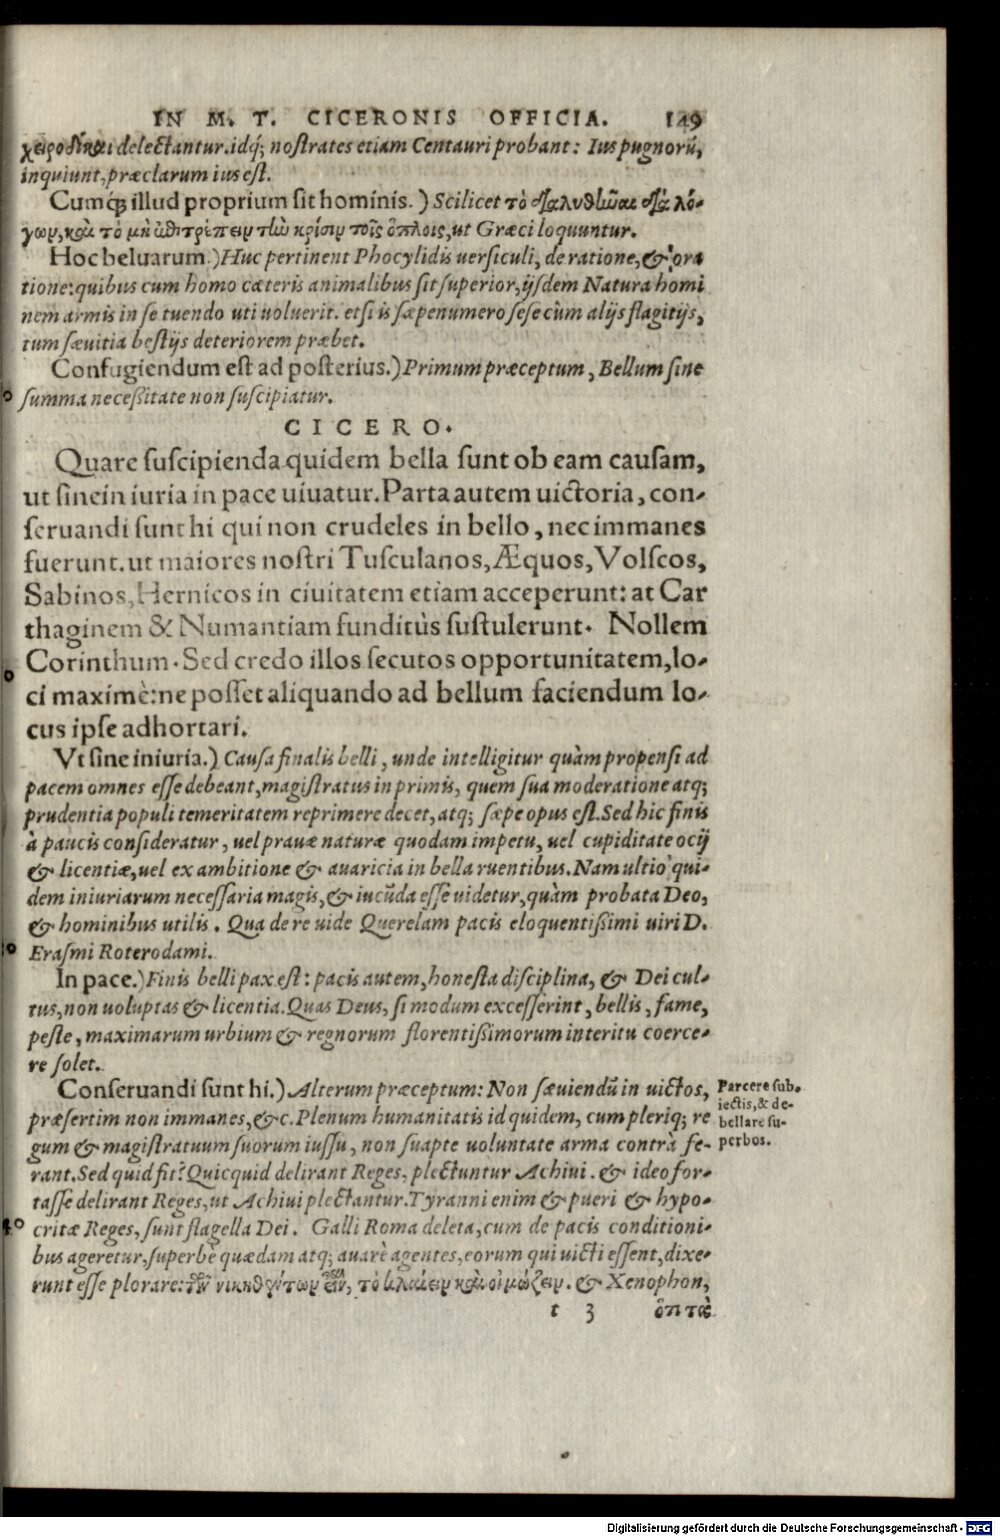 IN M. T. CICERONIS OFFICIA. 149
χειροδίκαι delectantur. idq́; nostrates etiam Centauri probant: Ius pugnorū,
inquiunt, præclarum ius est.
Cumq́; illud proprium sit hominis.) Scilicet τὸ διαλυθῶαι διὰ λό-
γων, καὶ τὸ μὴ ἐπιτρέπειν τὴν κρίσιν τοῖς ὅπλοις, ut Græci loquuntur.
Hoc beluarum.) Huc pertinent Phocylidis uersiculi, de ratione, & ora
tione: quibus cum homo cæteris animalibus sit superior, ijsdem Natura homi
nem armis in se tuendo uti uoluerit. etsi is sæpenumero sese cùm alijs flagitijs,
tum sæuitia bestijs deteriorem præbet.
Confugiendum est ad posterius.) Primum præceptum, Bellum sine
summa necessitate non suscipiatur.
CICERO.
Quare suscipienda quidem bella sunt ob eam causam,
ut sine in iuria in pace uiuatur. Parta autem uictoria, con-
seruandi sunt hi qui non crudeles in bello, nec immanes
fuerunt. ut maiores nostri Tusculanos, Æquos, Volscos,
Sabinos, Hernicos in ciuitatem etiam acceperunt: at Car
thaginem & Numantiam funditùs sustulerunt. Nollem
Corinthum. Sed credo illos secutos opportunitatem, lo-
ci maximè: ne posset aliquando ad bellum faciendum lo-
cus ipse adhortari.
Vt sine iniuria.) Causa finalis belli, unde intelligitur quàm propensi ad
pacem omnes esse debeant, magistratus in primis, quem sua moderatione atq;
prudentia populi temeritatem reprimere decet, atq; sæpe opus est. Sed hic finis
à paucis consideratur, uel prauæ naturæ quodam impetu, uel cupiditate ocij
& licentiæ, uel ex ambitione & auaricia in bella ruentibus. Nam ultio qui-
dem iniuriarum necessaria magis, & iucūda esse uidetur, quàm probata Deo,
& hominibus utilis. Qua de re uide Querelam pacis eloquentissimi uiri D.
Erasmi Roterodami.
In pace.) Finis belli pax est: pacis autem, honesta disciplina, & Dei cul-
tus, non uoluptas & licentia. Quas Deus, si modum excesserint, bellis, fame,
peste, maximarum urbium & regnorum florentissimorum interitu coerce-
re solet.
Conseruandi sunt hi.) Alterum præceptum: Non sæuiendū in uictos,
præsertim non immanes, &c. Plenum humanitatis id quidem, cum pleriq; re
gum & magistratuum suorum iussu, non suapte uoluntate arma contrà fe-
rant. Sed quid fit? Quicquid delirant Reges, plectuntur Achiui. & ideo for-
tasse delirant Reges, ut Achiui plectantur. Tyranni enim & pueri & hypo-
critæ Reges, sunt flagella Dei. Galli Roma deleta, cum de pacis conditioni-
bus ageretur, superbè quædam atq; auarè agentes, eorum qui uicti essent, dixe-
runt esse plorare: τῶν νικηθέντων εἶν, τὸ κλαίειν καὶ οἰμώζειν. & Xenophon,
Parcere sub-
iectis, & de-
bellare su-
perbos.
40
t 3 ὅτι τὰ
Digitalisierung gefördert durch die Deutsche Forschungsgemeinschaft - DFG